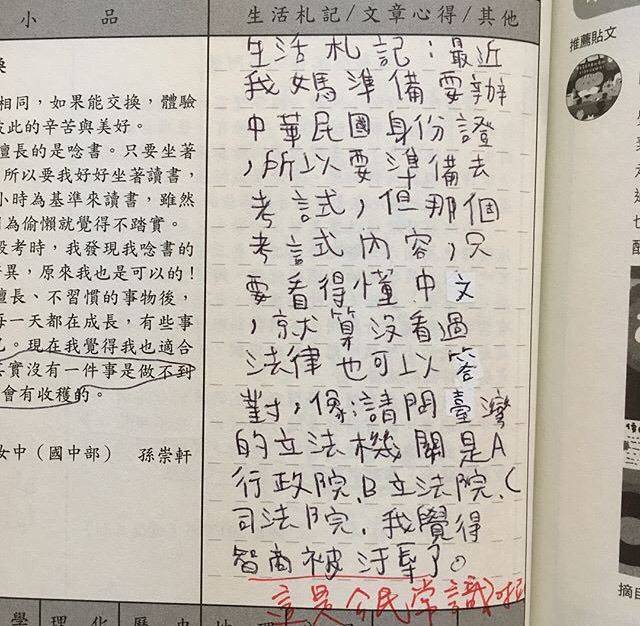 小 品
生活札記/文章心得/其他
相同，如果能交換，體驗
彼此的辛苦與美好。
擅長的是唸書。只要坐著
，所以要我好好坐著讀書，
小時為基準來讀書，雖然
因為偷懶就覺得不踏實。
段考時，我發現我唸書的
異，原來我也是可以的！
擅長、不習慣的事物後，
每一天都在成長，有些事
己。現在我覺得我也適合
其實沒有一件事是做不到
會有收穫的。
女中（國中部） 孫崇軒
生活札記：最近
我媽準備要辦
中華民國身份證
，所以要準備去
考試，但那個
考試內容，只
要看得懂中文
，就算沒看過
法律也可以答
對，像：請問臺灣
的立法機關是A
行政院、B立法院、C
司法院，我覺得
智商被汙辱了。
這是公民常識啦
學 理化 歷史 地
推薦貼文
摘自